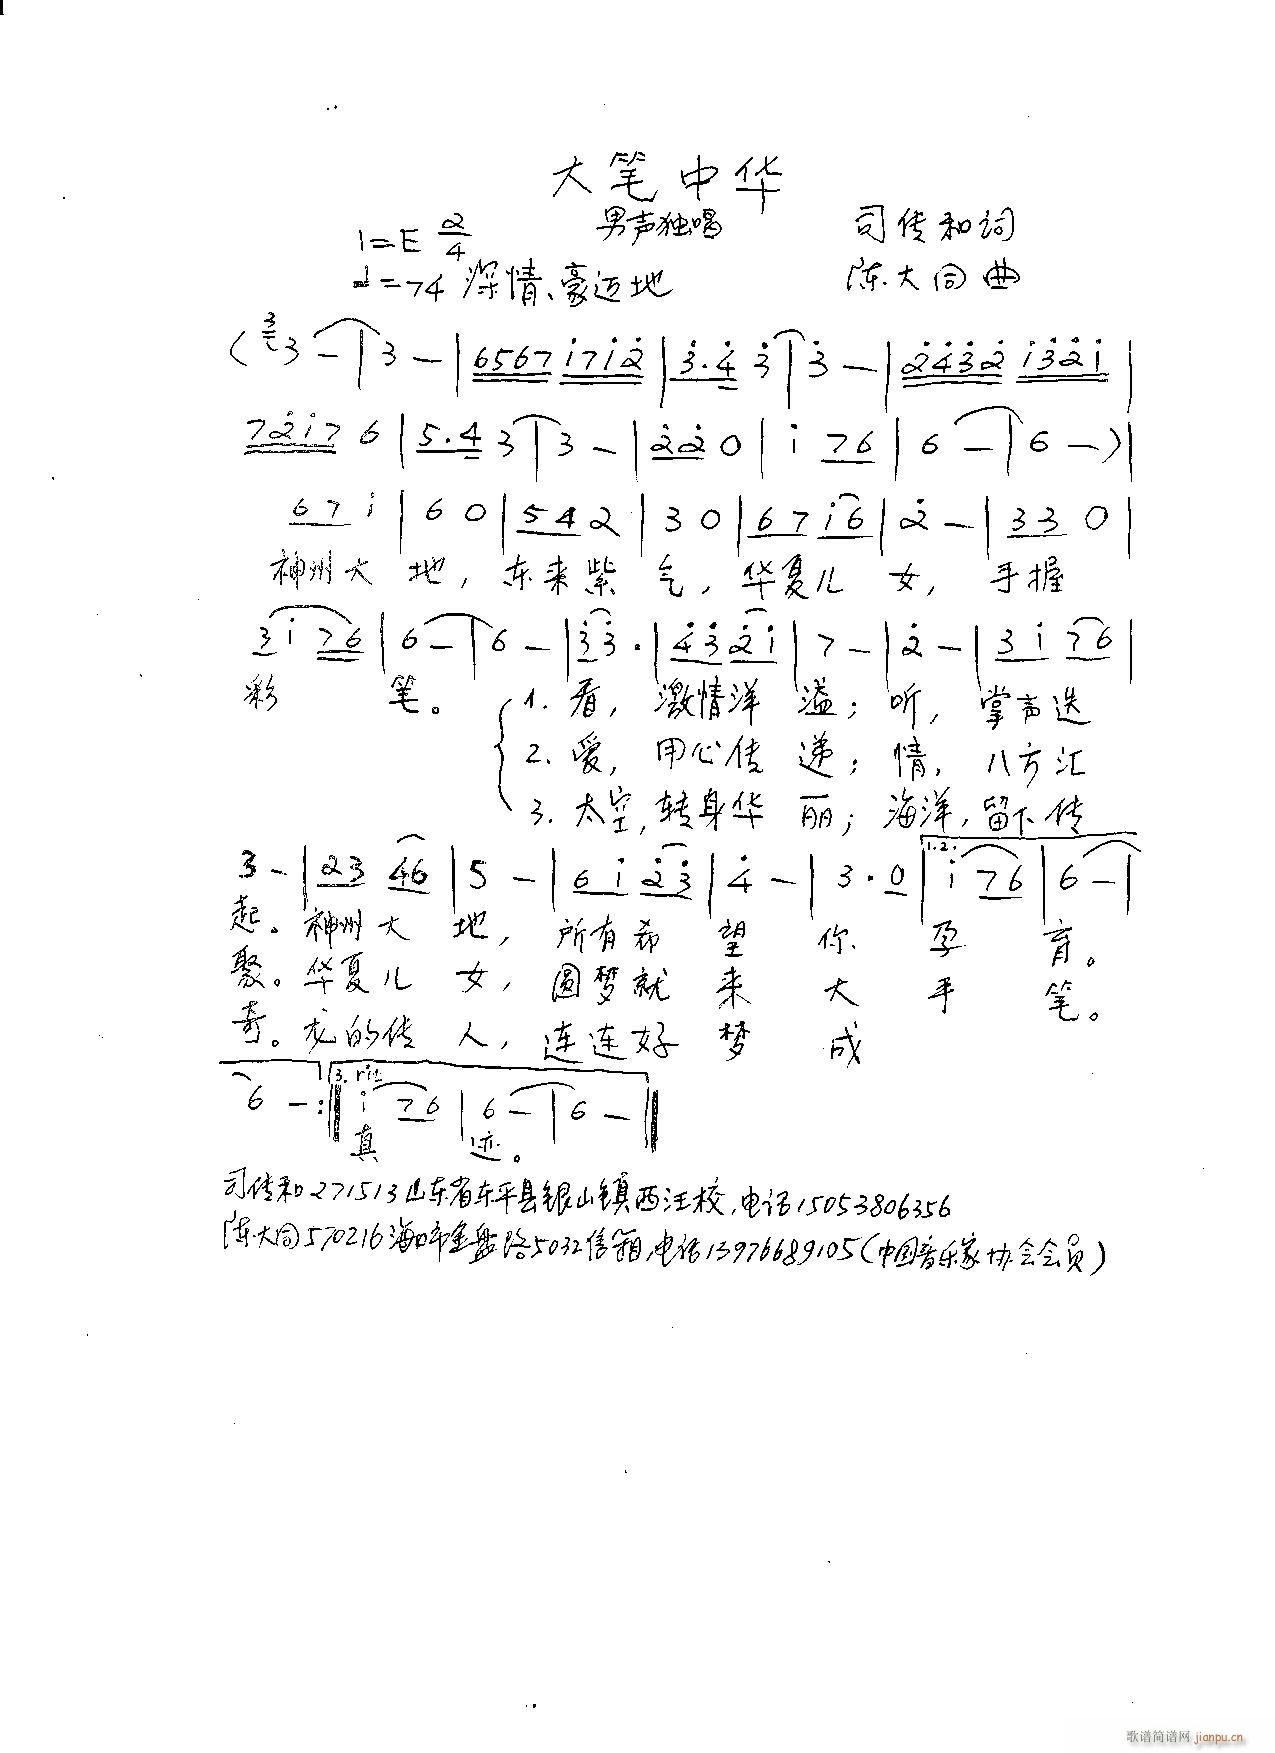 大笔中华
男声独唱
1=E 2/4
♩=74 深情、豪迈地
司传和词
陈大同曲
(3 3 — | 3 — | 6567 i7i2 | 3·4 3 | 3 — | 2432 i32i |
72i7 6 | 5·4 3 | 3 — | 22 0 | i 76 | 6 — | 6 —) |
67 i | 6 0 | 54 2 | 3 0 | 67 i6 | 2 — | 33 0 |
神州大地，东来紫气，华夏儿女，手握
3 i 76 | 6 — | 6 — | 33· | 43 2i | 7 — | 2 — | 3 i 76 |
彩笔。 1. 看，激情洋溢；听，掌声迭
2. 爱，用心传递；情，八方汇
3. 太空，转身华丽；海洋，留下传
1.2.
3 — | 23 46 | 5 — | 6 i 23 | 4 — | 3·0 | i 76 | 6 — |
起。神州大地，所有希望你孕育。
聚。华夏儿女，圆梦就来大手笔。
奇。龙的传人，连连好梦成
3. rit
6 — :‖ i 76 | 6 — | 6 — ‖
真迹。
司传和271513山东省东平县银山镇西汪校，电话15053806356
陈大同570216海口市金盘路5032信箱，电话13976689105(中国音乐家协会会员)
歌谱简谱网 jianpu.cn